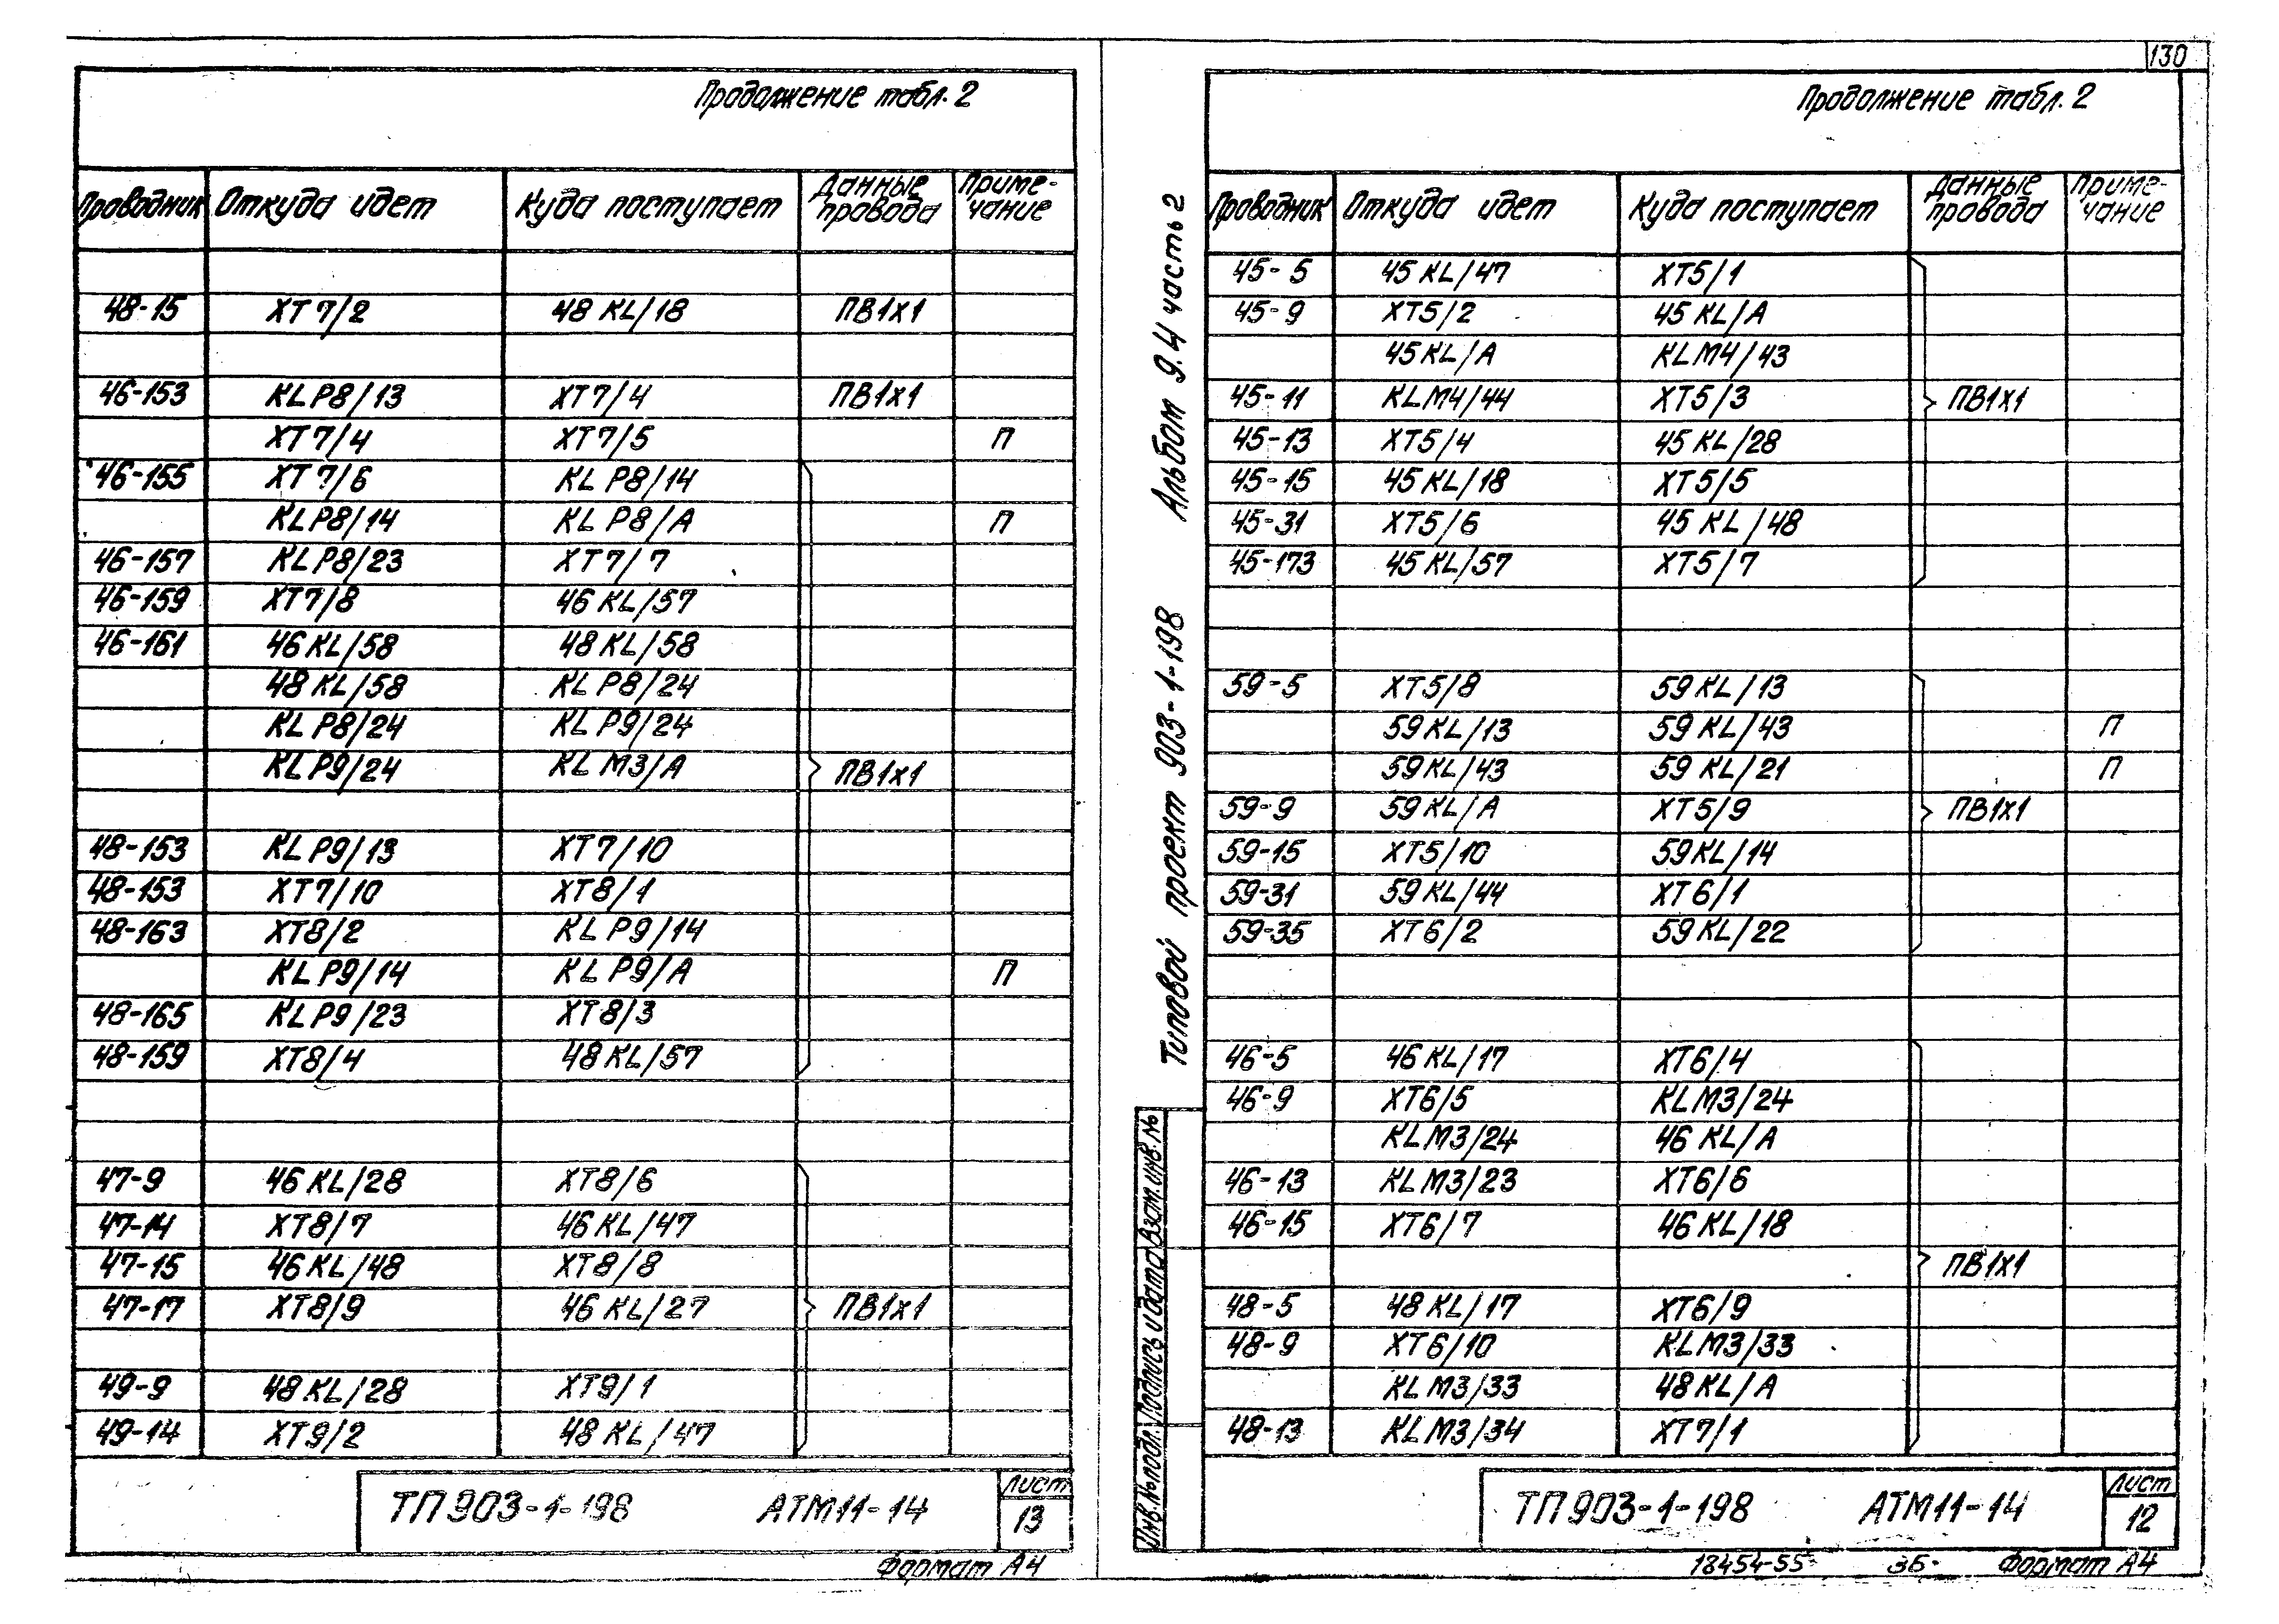 130
Продолжение табл. 2
Проводник Откуда идет Куда поступает Данные провода Приме-чание
48-15 XT7/2 48KL/18 ПВ1х1
46-153 KLP8/13 XT7/4 ПВ1х1
XT7/4 XT7/5 П
46-155 XT7/6 KLP8/14
KLP8/14 KLP8/A П
46-157 KLP8/23 XT7/7
46-159 XT7/8 46KL/57
46-161 46KL/58 48KL/58
48KL/58 KLP8/24
KLP8/24 KLP9/24
KLP9/24 KLM3/A ПВ1х1
48-153 KLP9/13 XT7/10
48-153 XT7/10 XT8/1
48-163 XT8/2 KLP9/14
KLP9/14 KLP9/A П
48-165 KLP9/23 XT8/3
48-159 XT8/4 48KL/57
47-9 46KL/28 XT8/6
47-14 XT8/7 46KL/47
47-15 46KL/48 XT8/8
47-17 XT8/9 46KL/27 ПВ1х1
49-9 48KL/28 XT9/1
49-14 XT9/2 48KL/47
ТП903-1-198 АТМ11-14 Лист 13
Формат А4
Типовой проект 903-1-198 Альбом 9.4 часть 2
Инв.№подл. Подпись и дата Взам.инв.№
Продолжение табл. 2
Проводник Откуда идет Куда поступает Данные провода Приме-чание
45-5 45KL/47 XT5/1
45-9 XT5/2 45KL/A
45KL/A KLM4/43
45-11 KLM4/44 XT5/3 ПВ1х1
45-13 XT5/4 45KL/28
45-15 45KL/18 XT5/5
45-31 XT5/6 45KL/48
45-173 45KL/57 XT5/7
59-5 XT5/8 59KL/13
59KL/13 59KL/43 П
59KL/43 59KL/21 П
59-9 59KL/A XT5/9 ПВ1х1
59-15 XT5/10 59KL/14
59-31 59KL/44 XT6/1
59-35 XT6/2 59KL/22
46-5 46KL/17 XT6/4
46-9 XT6/5 KLM3/24
KLM3/24 46KL/A
46-13 KLM3/23 XT6/6
46-15 XT6/7 46KL/18
ПВ1х1
48-5 48KL/17 XT6/9
48-9 XT6/10 KLM3/33
KLM3/33 48KL/A
48-13 KLM3/34 XT7/1
ТП903-1-198 АТМ11-14 Лист 12
18454-55 36 Формат А4